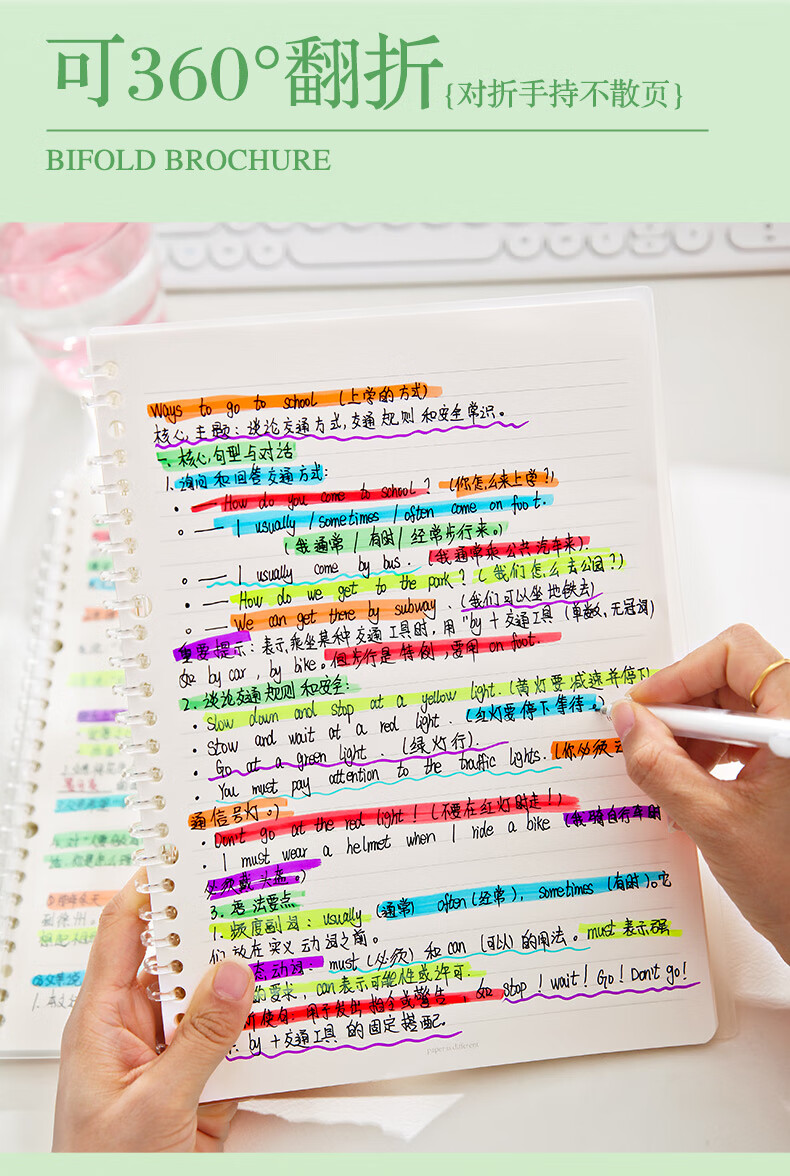 可360°翻折{对折手持不散页}
BIFOLD BROCHURE
Ways to go to school (上学的方式)
核心主题：谈论交通方式,交通规则和安全常识。
一、核心句型与对话
1.询问和回答交通方式：
• — How do you come to school? (你怎么来上学?)
。— I usually / sometimes / often come on foot.
(我通常/有时/经常步行来。)
。— I usually come by bus. (我通常乘公共汽车来).
• — How do we get to the park? (我们怎么去公园?)
。— We can get there by subway. (我们可以坐地铁去)
重要提示：表示乘坐某种交通工具时,用"by+交通工具(单数,无冠词)
如 by car, by bike。但步行是特例,要用 on foot.
2.谈论交通规则和安全：
• Slow down and stop at a yellow light. (黄灯要减速并停下)
• Stow and wait at a red light. (红灯要停下等待。
• Go at a green light. (绿灯行).
• You must pay attention to the traffic lights. (你必须
通信号灯。)
• Don't go at the red light! (不要在红灯时走!)
• I must wear a helmet when I ride a bike (我骑自行车时
必须戴头盔。)
3.语法要点
1.频度副词：usually (通常) often(经常), sometimes (有时)。它
们放在实义动词之前。
态动词：must(必须)和can(可以)的用法。must表示强
的要求，can表示可能性或许可.
使句：用于发出指令或警告，如 stop! wait! Go! Don't go!
by+交通工具的固定搭配。